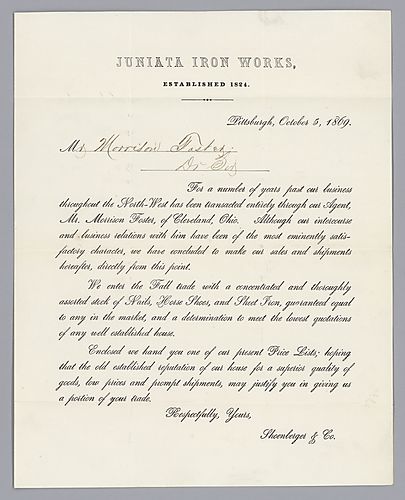 JUNIATA IRON WORKS,
ESTABLISHED 1824.
Pittsburgh, October 5, 1869.
Mr Morrison Foster.
Dr Sir
For a number of years past our business
throughout the North-West has been transacted entirely through our Agent,
Mr. Morrison Foster, of Cleveland, Ohio. Although our intercourse
and business relations with him have been of the most eminently satis-
factory character, we have concluded to make our sales and shipments
hereafter, directly from this point.
We enter the Fall trade with a concentrated and thoroughly
assorted stock of Nails, Horse Shoes, and Sheet Iron, guaranteed equal
to any in the market, and a determination to meet the lowest quotations
of any well established house.
Enclosed we hand you one of our present Price Lists; hoping
that the old established reputation of our house for a superior quality of
goods, low prices and prompt shipments, may justify you in giving us
a portion of your trade.
Respectfully, Yours,
Shoenberger & Co.